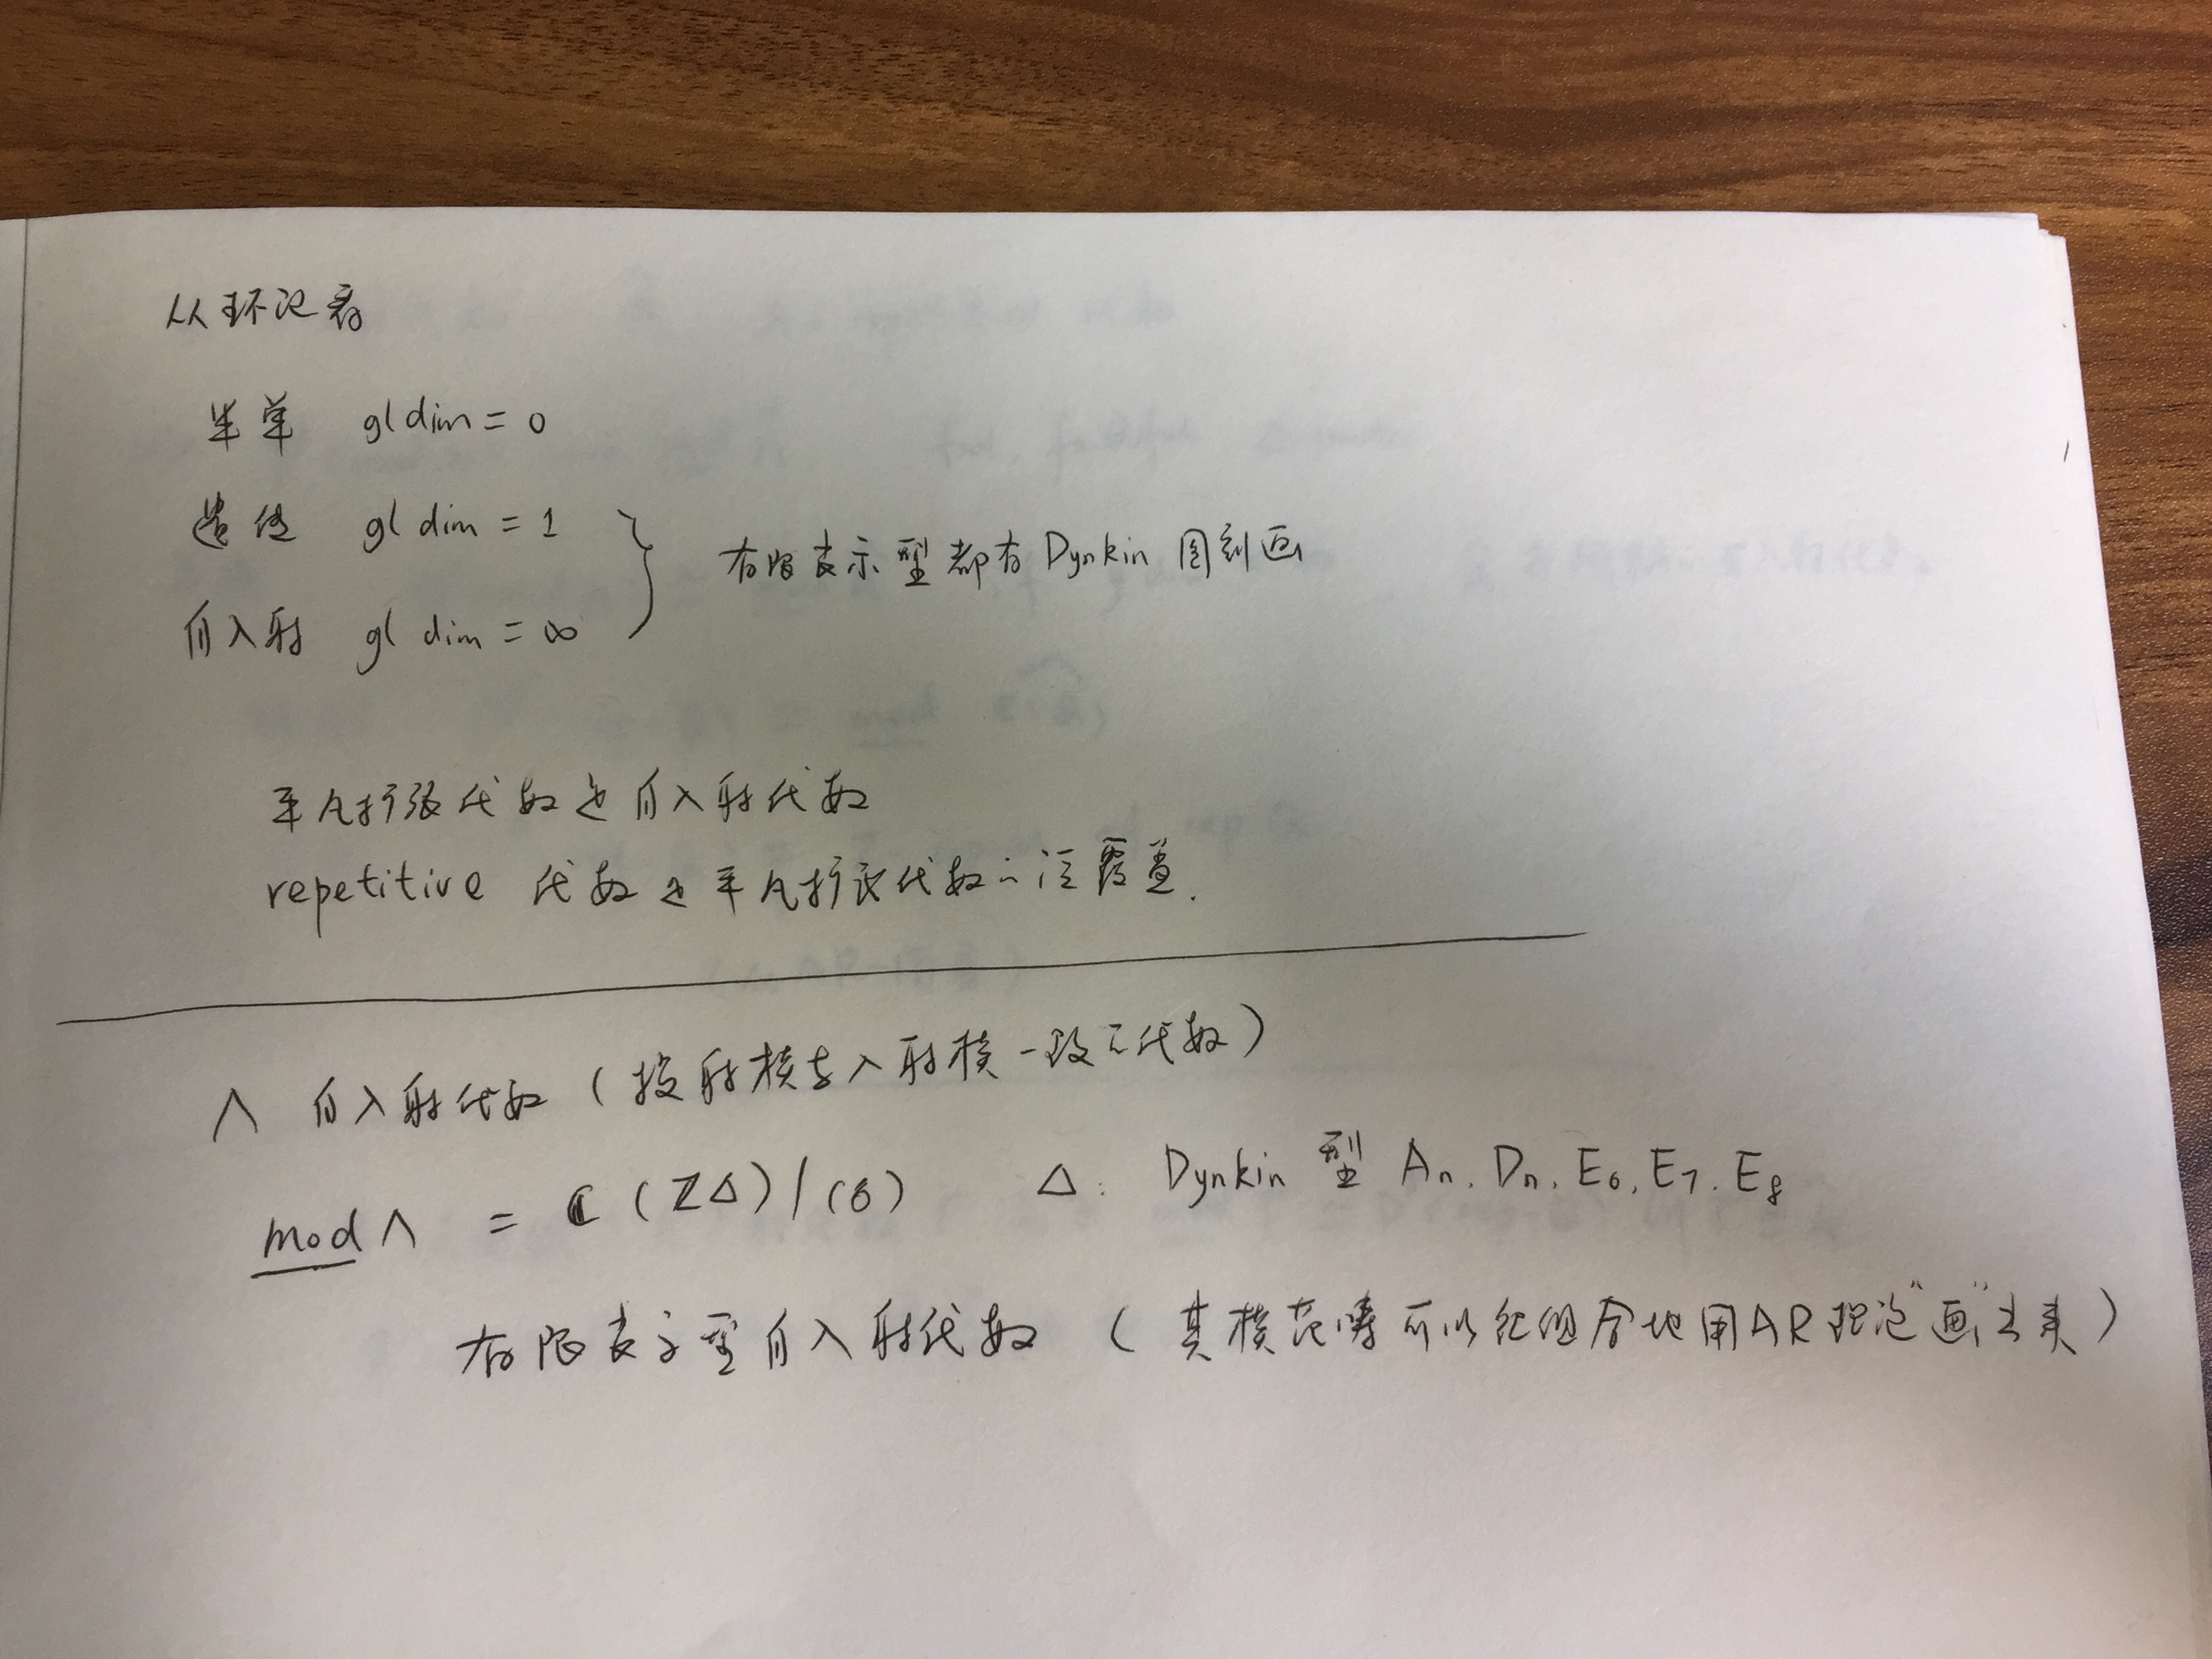 从环论看
半单 gl dim = 0
遗传 gl dim = 1
有限表示型都有 Dynkin 图刻画
自入射 gl dim = ∞
平凡扩张代数是自入射代数
repetitive 代数是平凡扩张代数的泛覆盖.
Λ 自入射代数 (投射模与入射模一致之代数)
mod Λ = C (ZΔ) / (G) Δ: Dynkin 型 An. Dn. E6. E7. E8
有限表示型自入射代数 (其模范畴可以组合地用AR理论"画"出来)